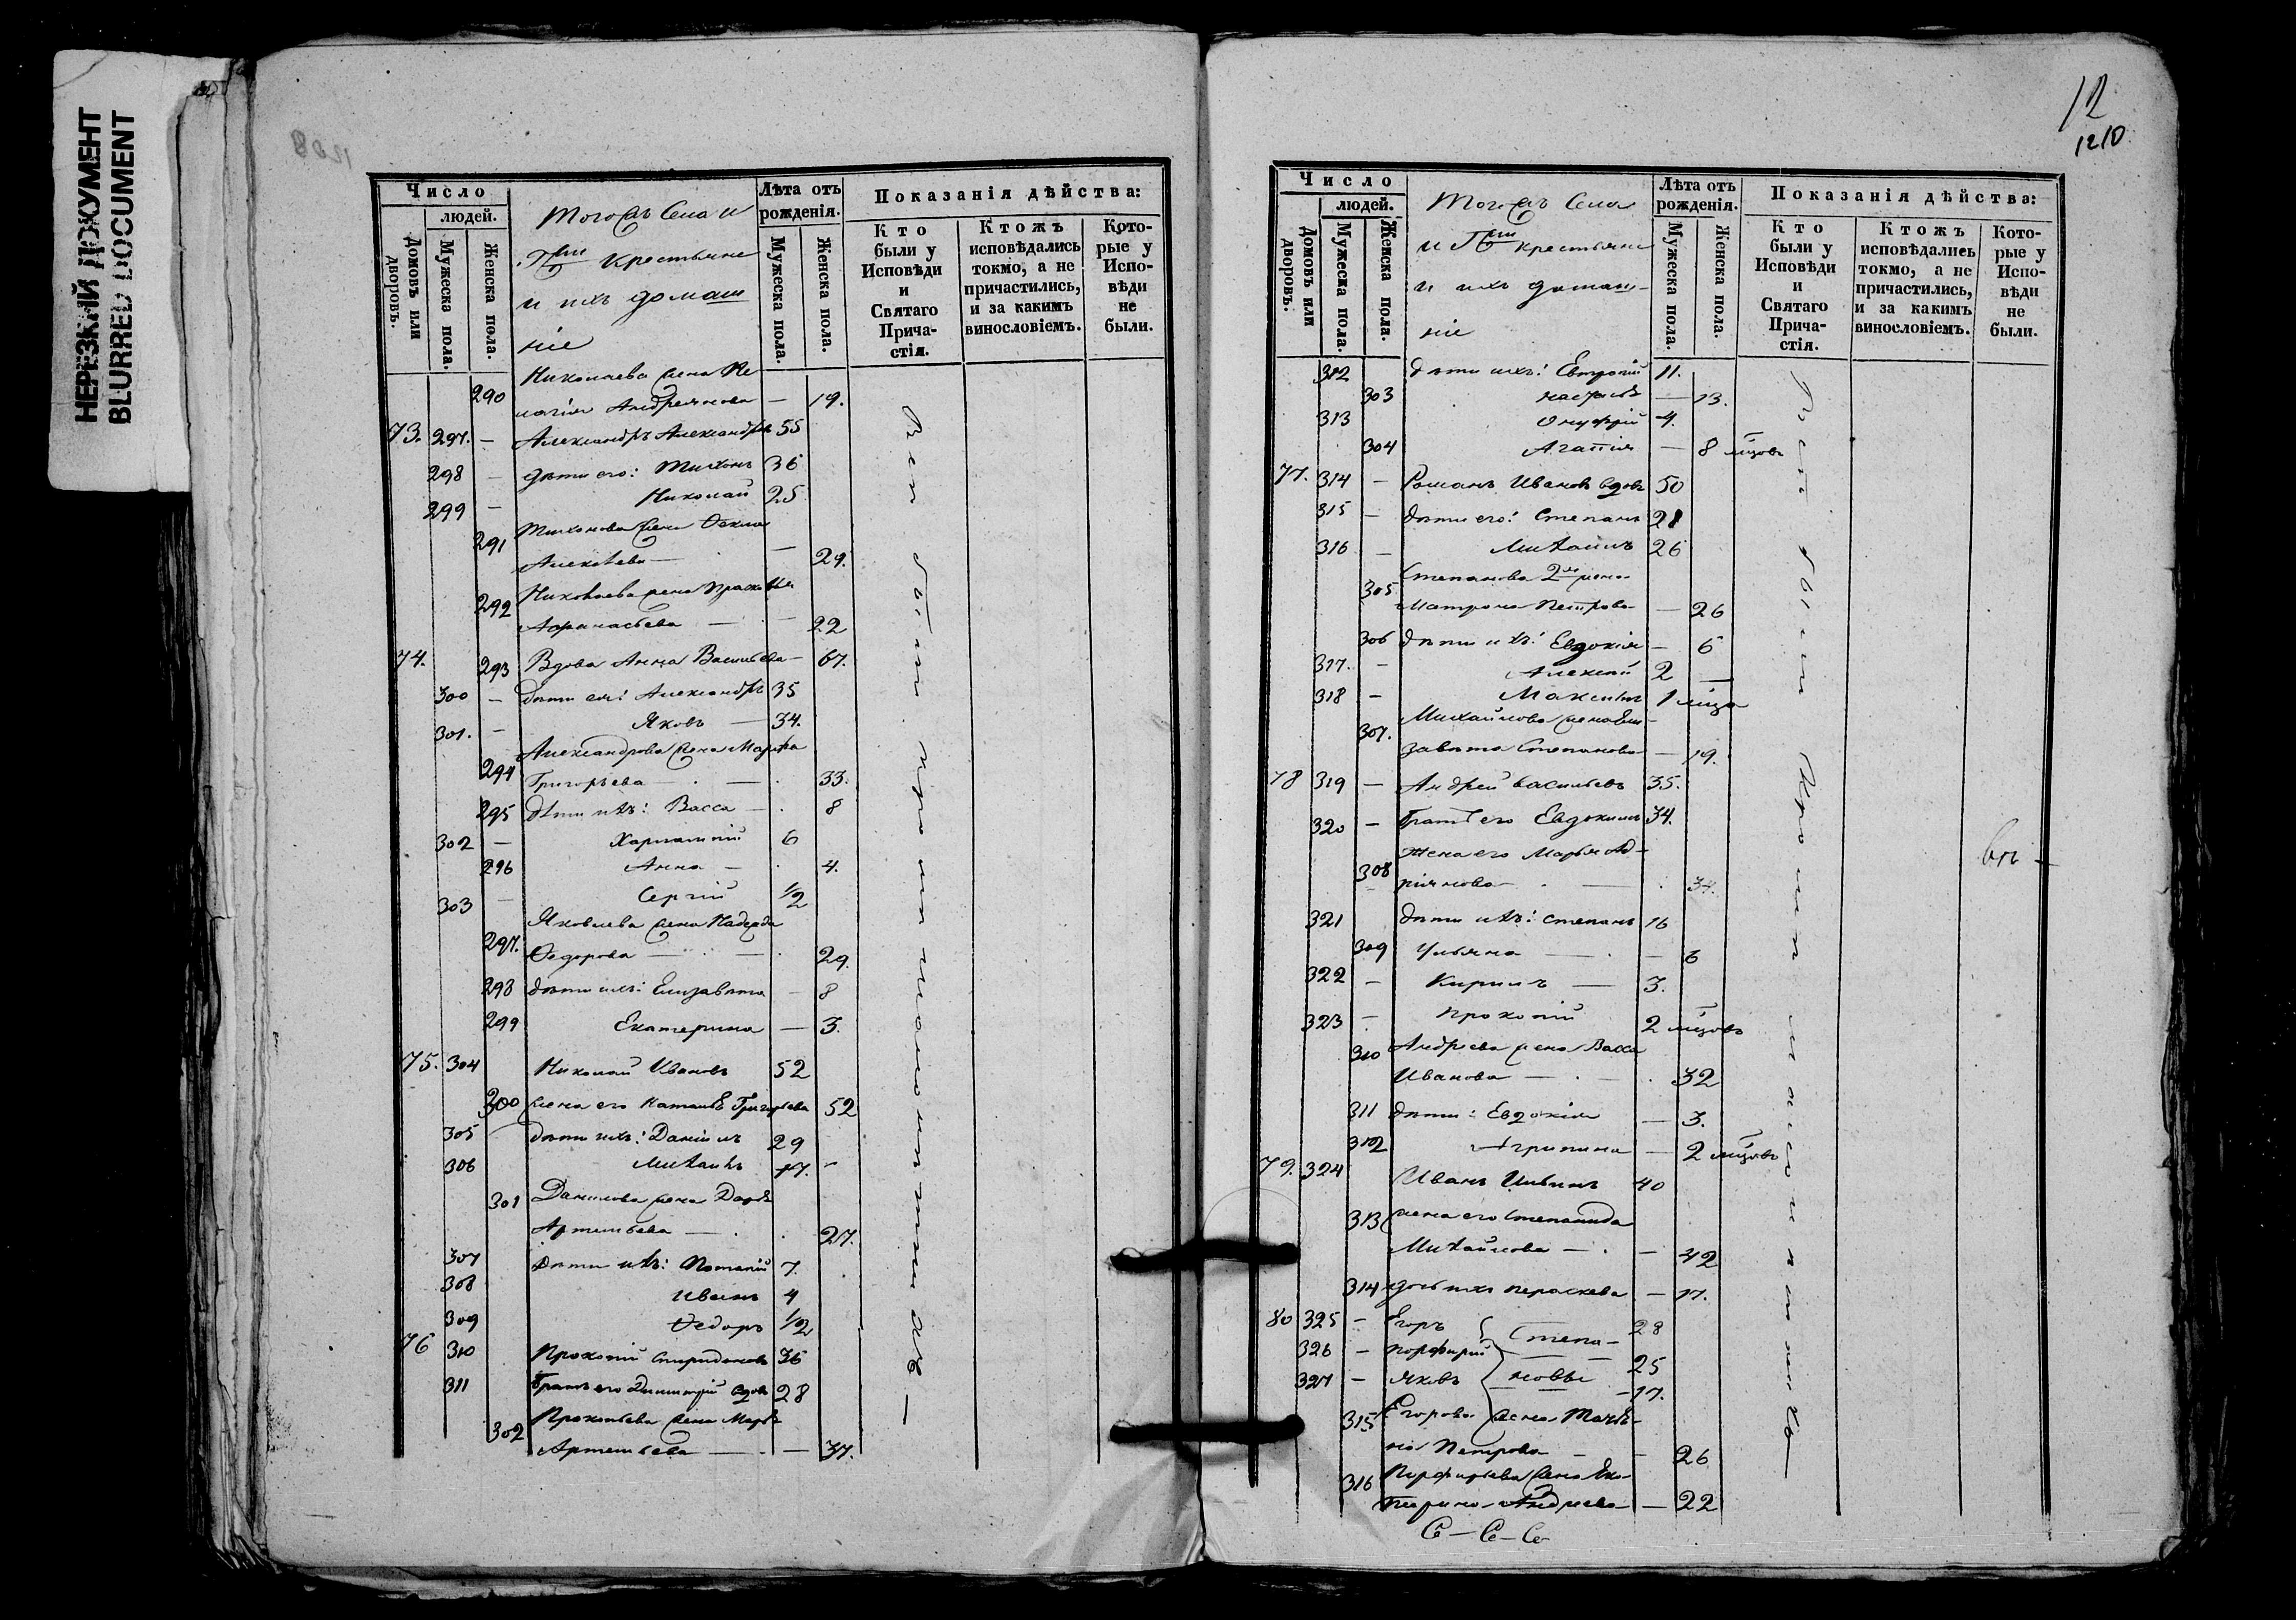 НЕРЕЗКИЙ ДОКУМЕНТ
BLURRED DOCUMENT
1208
Число
людей.
Домовъ или дворовъ.
Мужеска пола.
Женска пола.
Тогожъ Села и
крестьяне
и ихъ домаш
ніе
Лѣта отъ рожденія.
Мужеска пола.
Женска пола.
Показанія дѣйства:
Кто были у Исповѣди и Святаго Причастія.
Ктожъ исповѣдались токмо, а не причастились, и за какимъ винословіемъ.
Которые у Исповѣди не были.
Николаева жена Пе
290 лагія Андреянова — 19.
73. 297. — Александръ Александровъ 55
298 — дѣти его: Тихонъ 36
299 — Николай 25
Тихонова жена Фекла
291 Алексѣева — — 29.
Николаева жена Праско
292 Афанасьева — — 22
74. 293 Вдова Анна Васильева — 67.
300 — дѣти ея: Александръ 35
301. — Яковъ — 34.
Александрова жена Марфа
294 Григорьева — — 33.
295 дѣти ихъ: Васса — 8
302 — Харлампій 6
296 Анна — 4.
303 — Сергій 1/2
Яковлева жена Надежда
297. Федорова — — 29.
298 дѣти ихъ: Елизавета — 8
299 Екатерина — 3.
75. 304 Николай Ивановъ 52
300 жена его Наталья Григорьева 52
305 дѣти ихъ: Даніилъ 29
306 Михаилъ 17. —
301 Данилова жена Дарья
Артемьева — 27.
307 Дѣти ихъ: Потапій 7.
308 Иванъ 4
309 Федоръ 1/2
76 310 Прокопій Спиридоновъ 36
311 братъ его Димитрій вдовъ 28
Прокопьева жена Марья
302 Артемьева — — 37.
Всѣ были
12
1210
Число
людей.
Домовъ или дворовъ.
Мужеска пола.
Женска пола.
Тогожъ Села
и крестьяне
и ихъ домаш-
ніе
Лѣта отъ рожденія.
Мужеска пола.
Женска пола.
Показанія дѣйства:
Кто были у Исповѣди и Святаго Причастія.
Ктожъ исповѣдались токмо, а не причастились, и за какимъ винословіемъ.
Которые у Исповѣди не были.
312 дѣти ихъ: Евтропій 11.
303 Настасья — 13.
313 Онуфрій 4.
304 Агапія — 8 мцовъ
77. 314 — Романъ Ивановъ вдовъ 50
315 — дѣти его: Степанъ 28
316 — Михаилъ 26
Степанова 2я жена
305 Матрона Петрова — 26
306 дѣти ихъ: Евдокія — 6
317. — Алексѣй 2 —
318 — Максимъ 1 мцъ
Михайлова жена Ели-
307. завета Степанова — 19.
78 319 — Андрей Васильевъ 35.
320 — братъ его Евдокимъ 34.
жена его Марья Ад-
308 ріянова — — 34.
321 дѣти ихъ: Степанъ 16
309 Ульяна — — 6
322 — Кирилъ — 3.
323 — Прокопій 2 мцовъ
310 Андреева жена Васса
Иванова — — 32
311 дѣти: Евдокія — 3.
312 Агрипина — 2 мцовъ
79. 324 Иванъ Ильинъ 40
313 жена его Степанида
Михайлова — — 42
314 дочь ихъ Параскева — 17.
80 325 — Егоръ Степа- 28
326 — Порфирій — 25
327 — Яковъ новы — 17.
315 Егорова жена Татья-
на Петрова — — 26
316 Порфирьева жена Ека-
терина Андреева — — 22